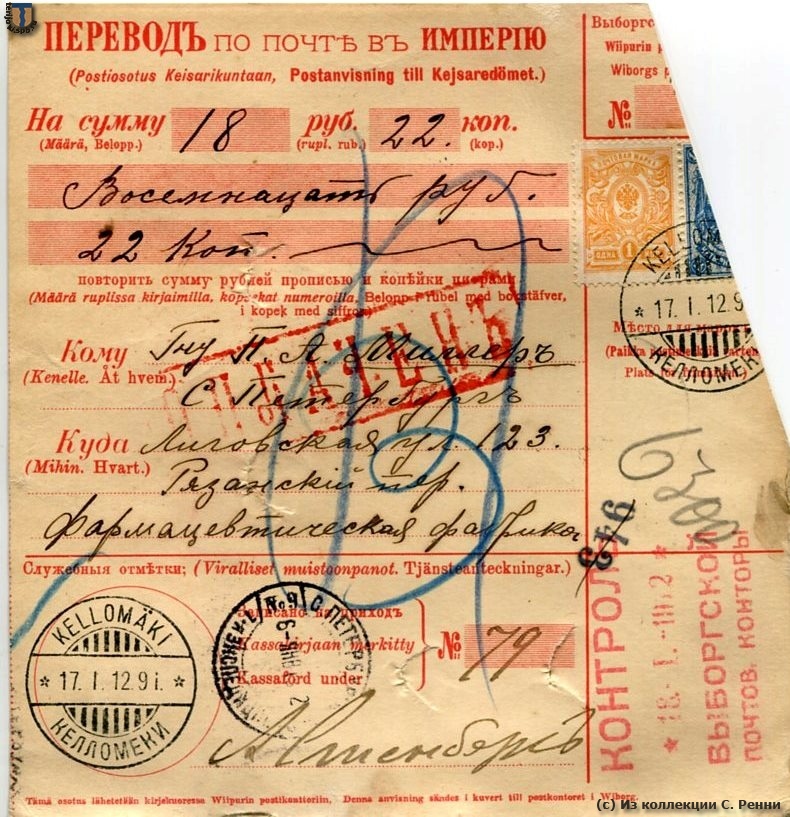 ПЕРЕВОДЪ ПО ПОЧТѢ ВЪ ИМПЕРІЮ
(Postiosotus Keisarikuntaan, Postanvisning till Kejsaredömet.)
На сумму 18 руб. 22 коп.
(Määrä, Belopp.) (rupl. rub.) (kop.)
Восемнацать руб.
22 Коп.
повторить сумму рублей прописью и копѣйки цифрами
(Määrä ruplissa kirjaimilla, kopeekat numeroilla, Belopp i rubel med bokstäfver,
i kopek med siffror.)
Кому Гну П. А. Миллеръ
(Kenelle. Åt hvem.)
С Петербургъ
Куда Лиговская ул. 123.
(Mihin. Hvart.)
Рязанский пер.
фармацевтическая фабрика
Служебныя отмѣтки; (Viralliset muistoonpanot. Tjänsteanteckningar.)
Записано на приходъ
Kassakirjaan merkitty № 79
Kassaförd under
Tämä osotus lähetetään kirjekuoressa Wiipurin postikonttoriin, Denna anvisning sändes i kuvert till postkontoret i Wiborg.
Выборгс
Wiipurin p
Wiborgs p
№
ПОЧТОВАЯ МАРКА
ОДНА 1
KELLO
17. I. 12.9
КЕЛЛОМЕКИ
Мѣсто для марок
(Paikka postimerkkiä varten
Plats för frimärken.)
943
КОНТРОЛЬ
* 18. I. 1912 *
ВЫБОРГСКОЙ
ПОЧТОВ. КОНТОРЫ
KELLOMÄKI
* 17. I. 12.9 i. *
КЕЛЛОМЕКИ
№9 С.ПЕТЕРБ
(c) Из коллекции С. Ренни